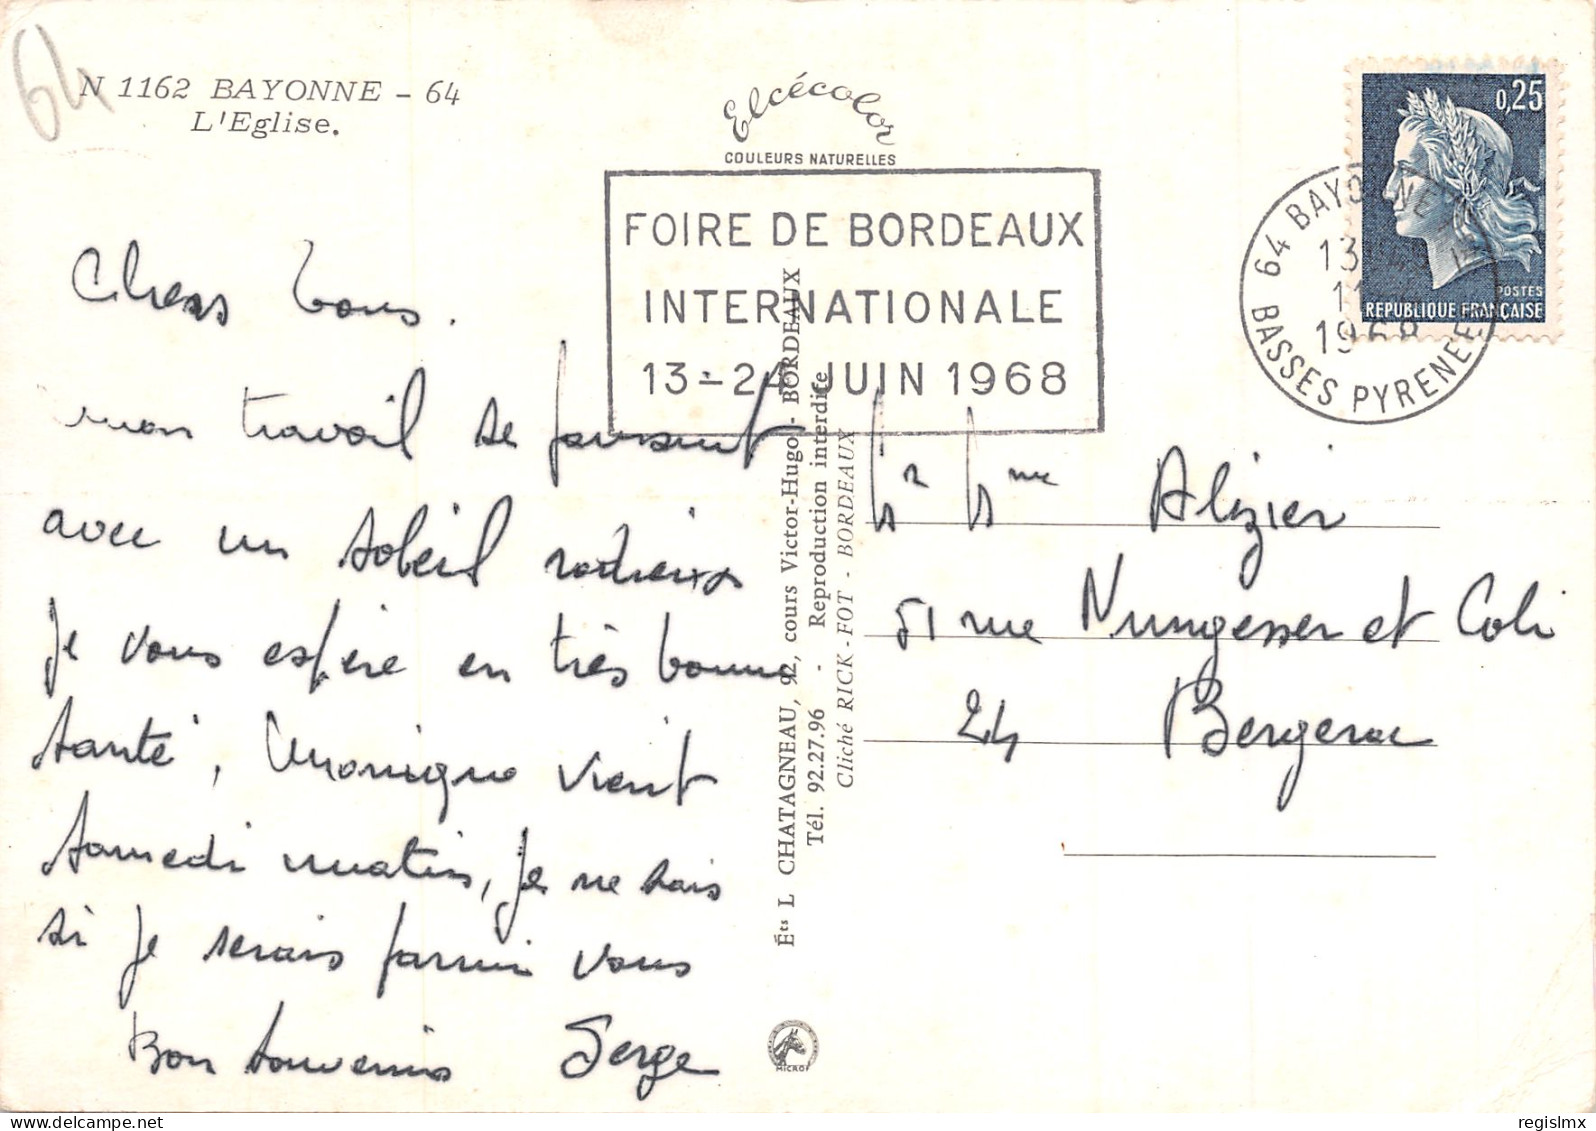 64
N 1162 BAYONNE - 64
L'Eglise.
Elcécolor
COULEURS NATURELLES
FOIRE DE BORDEAUX
INTERNATIONALE
13-24 JUIN 1968
0,25
POSTES
REPUBLIQUE FRANÇAISE
64 BAYONNE
13
11
1968
BASSES PYRENEES
Chers tous.
mon travail se poursuit
avec un soleil radieux
je vous espère en très bonne
santé, Monique vient
samedi matin, je ne sais
si je serais parmi vous
Bon souvenirs Serge
Éts L CHATAGNEAU, 92, cours Victor-Hugo - BORDEAUX
Tél. 92.27.96 - Reproduction interdite
Cliché RICK-FOT - BORDEAUX
Mr Mme Alizier
51 rue Nungesser et Coli
24 Bergerac
MICROF
delcampe.net
regislmx